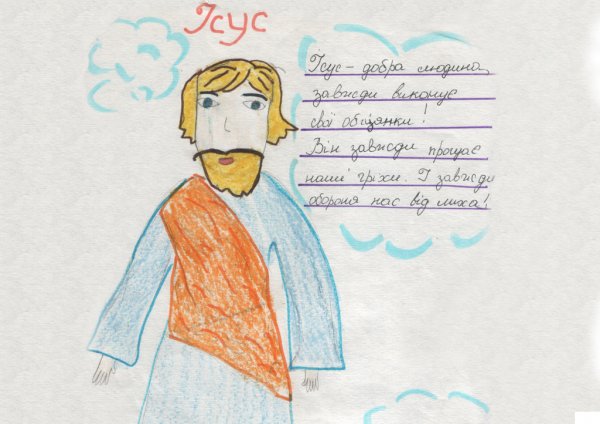 Ісус
Ісус – добра людина,
завжди виконує
свої обіцянки!
Він завжди прощає
наші гріхи. І завжди
обороня нас від лиха!